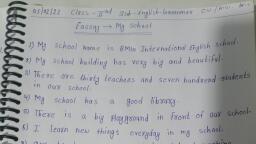 05/02/22 Class - IInd Sub - English Grammar C.W/H.W
Essay → My School
1) My school name is BMW International English school.
2) My school building has very big and beautiful.
3) There are thirty teachers and seven hundread students
in our school.
4) My school has a good library.
5) There is a big playground in front of our school.
6) I learn new things everyday in my school.